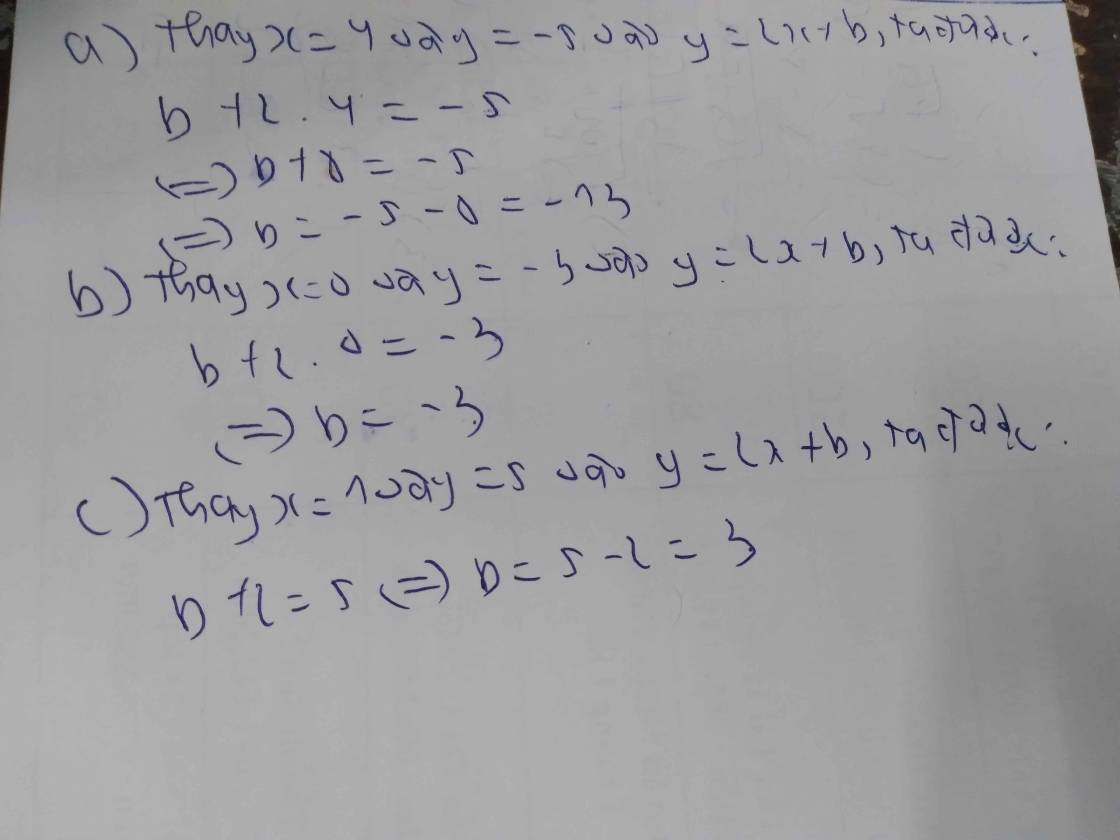 a) Thay x = 4 và y = -5 vào y = 2x + b, ta được:
b + 2 . 4 = -5
(=) b + 8 = -5
(=) b = -5 - 8 = -13
b) Thay x = 0 và y = -3 vào y = 2x + b, ta được:
b + 2 . 0 = -3
(=) b = -3
c) Thay x = 1 và y = 5 vào y = 2x + b, ta được:
b + 2 = 5 (=) b = 5 - 2 = 3